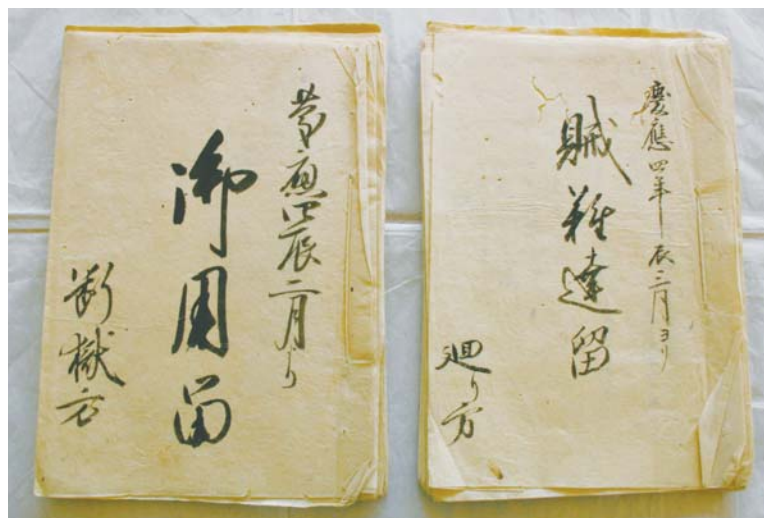 慶應四年辰三月ヨリ
賊難達留
廻り方
慶應四辰二月より
御用留
断獄方